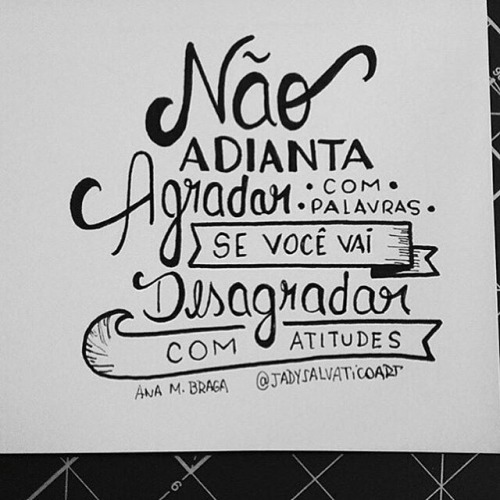 Não
ADIANTA
Agradar • COM •
• PALAVRAS •
SE VOCÊ VAI
Desagradar
COM ATITUDES
ANA M. BRAGA @JADYSALVATICOART